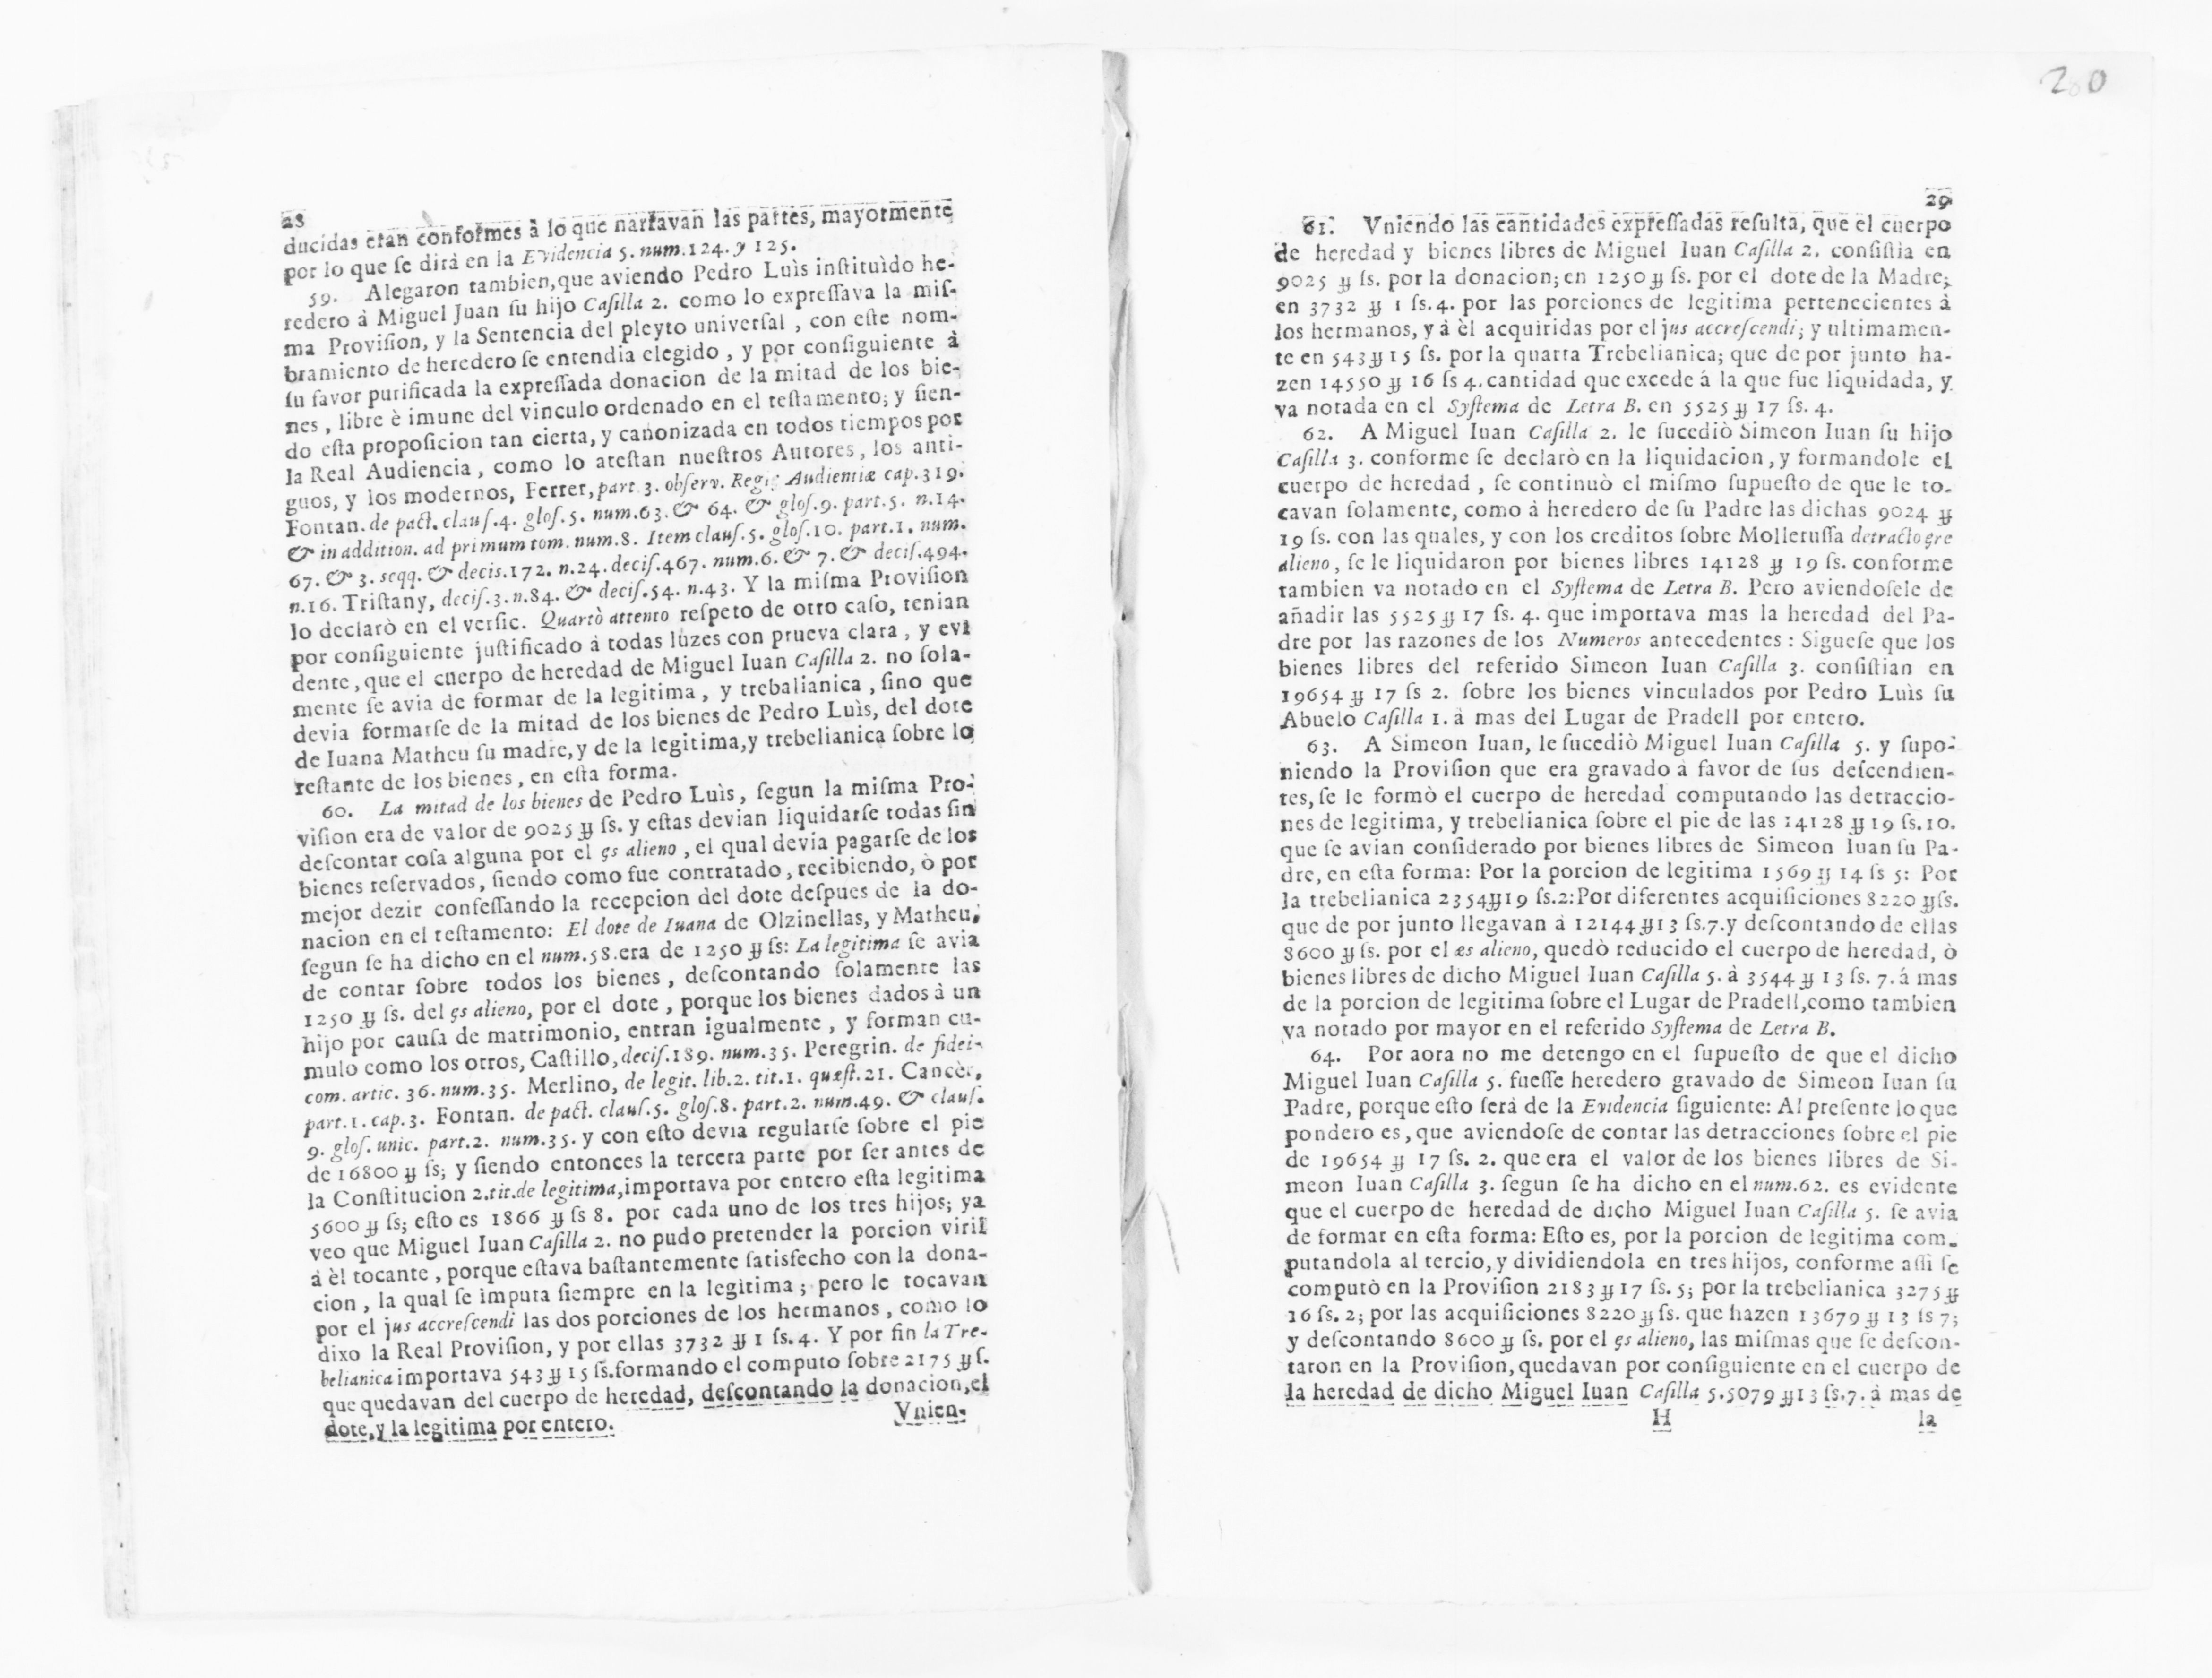 28
ducidas eran conformes à lo que narravan las partes, mayormente
por lo que ſe dirà en la Evidencia 5. num.124. y 125.
59. Alegaron tambien, que aviendo Pedro Luìs inſtituìdo he-
redero à Miguel Juan ſu hijo Caſilla 2. como lo expreſſava la miſ-
ma Proviſion, y la Sentencia del pleyto univerſal, con eſte nom-
bramiento de heredero ſe entendia elegido, y por conſiguiente à
ſu favor purificada la expreſſada donacion de la mitad de los bie-
nes, libre è imune del vinculo ordenado en el teſtamento; y ſien-
do eſta propoſicion tan cierta, y canonizada en todos tiempos por
la Real Audiencia, como lo ateſtan nueſtros Autores, los anti-
guos, y los modernos, Ferrer, part. 3. obſerv. Regię Audientiæ cap.319.
Fontan. de pact. clauſ.4. gloſ.5. num.63. & 64. & gloſ.9. part.5. n.14.
& in addition. ad primum tom. num.8. Item clauſ.5. gloſ.10. part.1. num.
67. & 3. seqq. & decis.172. n.24. deciſ.467. num.6. & 7. & deciſ.494.
n.16. Triſtany, deciſ.3. n.84. & deciſ.54. n.43. Y la miſma Proviſion
lo declarò en el verſic. Quartò attento reſpeto de otro caſo, tenian
por conſiguiente juſtificado à todas luzes con prueva clara, y evi
dente, que el cuerpo de heredad de Miguel Iuan Caſilla 2. no ſola-
mente ſe avia de formar de la legitima, y trebalianica, ſino que
devia formarſe de la mitad de los bienes de Pedro Luìs, del dote
de Iuana Matheu ſu madre, y de la legitima, y trebelianica ſobre lo
reſtante de los bienes, en eſta forma.
60. La mitad de los bienes de Pedro Luìs, ſegun la miſma Pro-
viſion era de valor de 9025 ɟɟ ſs. y eſtas devian liquidarſe todas ſin
deſcontar coſa alguna por el ęs alieno, el qual devia pagarſe de los
bienes reſervados, ſiendo como fue contratado, recibiendo, ò por
mejor dezir confeſſando la recepcion del dote deſpues de la do-
nacion en el teſtamento: El dote de Iuana de Olzinellas, y Matheu,
ſegun ſe ha dicho en el num.58. era de 1250 ɟɟ ſs: La legitima ſe avia
de contar ſobre todos los bienes, deſcontando ſolamente las
1250 ɟɟ ſs. del ęs alieno, por el dote, porque los bienes dados à un
hijo por cauſa de matrimonio, entran igualmente, y forman cu-
mulo como los otros, Caſtillo, deciſ.189. num.35. Peregrin. de fidei-
com. artic. 36. num.35. Merlino, de legit. lib.2. tit.1. quæſt.21. Cancèr,
part.1. cap.3. Fontan. de pact. clauſ.5. gloſ.8. part.2. num.49. & clauſ.
9. gloſ. unic. part.2. num.35. y con eſto devia regularſe ſobre el pie
de 16800 ɟɟ ſs; y ſiendo entonces la tercera parte por ſer antes de
la Conſtitucion 2. tit. de legitima, importava por entero eſta legitima
5600 ɟɟ ſs; eſto es 1866 ɟɟ ſs 8. por cada uno de los tres hijos; ya
veo que Miguel Iuan Caſilla 2. no pudo pretender la porcion viril
à èl tocante, porque eſtava baſtantemente ſatisfecho con la dona-
cion, la qual ſe imputa ſiempre en la legitima; pero le tocavan
por el jus accreſcendi las dos porciones de los hermanos, como lo
dixo la Real Proviſion, y por ellas 3732 ɟɟ 1 ſs.4. Y por fin la Tre-
belianica importava 543 ɟɟ 15 ſs. formando el computo ſobre 2175 ɟɟ ſ.
que quedavan del cuerpo de heredad, deſcontando la donacion, el
dote, y la legitima por entero.
Vnien-
200
29
61. Vniendo las cantidades expreſſadas reſulta, que el cuerpo
de heredad y bienes libres de Miguel Iuan Caſilla 2. conſiſtia en
9025 ɟɟ ſs. por la donacion; en 1250 ɟɟ ſs. por el dote de la Madre;
en 3732 ɟɟ 1 ſs.4. por las porciones de legitima pertenecientes à
los hermanos, y à èl acquiridas por el jus accreſcendi; y ultimamen-
te en 543 ɟɟ 15 ſs. por la quarta Trebelianica; que de por junto ha-
zen 14550 ɟɟ 16 ſs 4. cantidad que excede á la que fue liquidada, y
va notada en el Syſtema de Letra B. en 5525 ɟɟ 17 ſs. 4.
62. A Miguel Iuan Caſilla 2. le ſucediò Simeon Iuan ſu hijo
Caſilla 3. conforme ſe declarò en la liquidacion, y formandole el
cuerpo de heredad, ſe continuò el miſmo ſupueſto de que le to-
cavan ſolamente, como à heredero de ſu Padre las dichas 9024 ɟɟ
19 ſs. con las quales, y con los creditos ſobre Molleruſſa detracto ęre
alieno, ſe le liquidaron por bienes libres 14128 ɟɟ 19 ſs. conforme
tambien va notado en el Syſtema de Letra B. Pero aviendoſele de
añadir las 5525 ɟɟ 17 ſs. 4. que importava mas la heredad del Pa-
dre por las razones de los Numeros antecedentes: Sigueſe que los
bienes libres del referido Simeon Iuan Caſilla 3. conſiſtian en
19654 ɟɟ 17 ſs 2. ſobre los bienes vinculados por Pedro Luìs ſu
Abuelo Caſilla 1. à mas del Lugar de Pradell por entero.
63. A Simeon Iuan, le ſucediò Miguel Iuan Caſilla 5. y ſupo-
niendo la Proviſion que era gravado à favor de ſus deſcendien-
tes, ſe le formò el cuerpo de heredad computando las detraccio-
nes de legitima, y trebelianica ſobre el pie de las 14128 ɟɟ 19 ſs.10.
que ſe avian conſiderado por bienes libres de Simeon Iuan ſu Pa-
dre, en eſta forma: Por la porcion de legitima 1569 ɟɟ 14 ſs 5: Por
la trebelianica 2354 ɟɟ 19 ſs.2: Por diferentes acquiſiciones 8220 ɟɟ ſs.
que de por junto llegavan à 12144 ɟɟ 13 ſs.7. y deſcontando de ellas
8600 ɟɟ ſs. por el æs alieno, quedò reducido el cuerpo de heredad, ò
bienes libres de dicho Miguel Iuan Caſilla 5. à 3544 ɟɟ 13 ſs. 7. á mas
de la porcion de legitima ſobre el Lugar de Pradell, como tambien
va notado por mayor en el referido Syſtema de Letra B.
64. Por aora no me detengo en el ſupueſto de que el dicho
Miguel Iuan Caſilla 5. fueſſe heredero gravado de Simeon Iuan ſu
Padre, porque eſto ſerà de la Evidencia ſiguiente: Al preſente lo que
pondero es, que aviendoſe de contar las detracciones ſobre el pie
de 19654 ɟɟ 17 ſs. 2. que era el valor de los bienes libres de Si-
meon Iuan Caſilla 3. ſegun ſe ha dicho en el num.62. es evidente
que el cuerpo de heredad de dicho Miguel Iuan Caſilla 5. ſe avia
de formar en eſta forma: Eſto es, por la porcion de legitima com-
putandola al tercio, y dividiendola en tres hijos, conforme aſſi ſe
computò en la Proviſion 2183 ɟɟ 17 ſs. 5; por la trebelianica 3275 ɟɟ
16 ſs. 2; por las acquiſiciones 8220 ɟɟ ſs. que hazen 13679 ɟɟ 13 ſs 7;
y deſcontando 8600 ɟɟ ſs. por el ęs alieno, las miſmas que ſe deſcon-
taron en la Proviſion, quedavan por conſiguiente en el cuerpo de
la heredad de dicho Miguel Iuan Caſilla 5. 5079 ɟɟ 13 ſs.7. à mas de
H
la